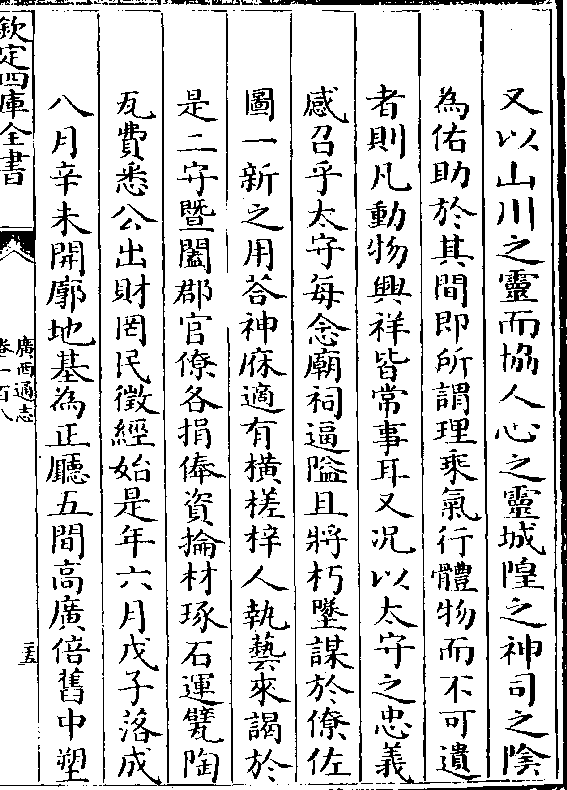 又以山川之靈而協人心之靈城隍之神司之陰
為佑助於其間即所謂理乘氣行體物而不可遺
者則凡動物興祥皆常事耳又况以太守之忠義
感召乎太守每念廟祠逼隘且將朽墜謀於僚佐
圖一新之用荅神庥適有横槎梓人執藝來謁於
是二守暨闔郡官僚各捐俸資掄材琢石運甓陶
瓦費悉公出財罔民徵經始是年六月戊子落成
八月辛未開廓地基為正廳五間高廣倍舊中塑
欽定四庫全書
廣西通志
卷一百八
二五